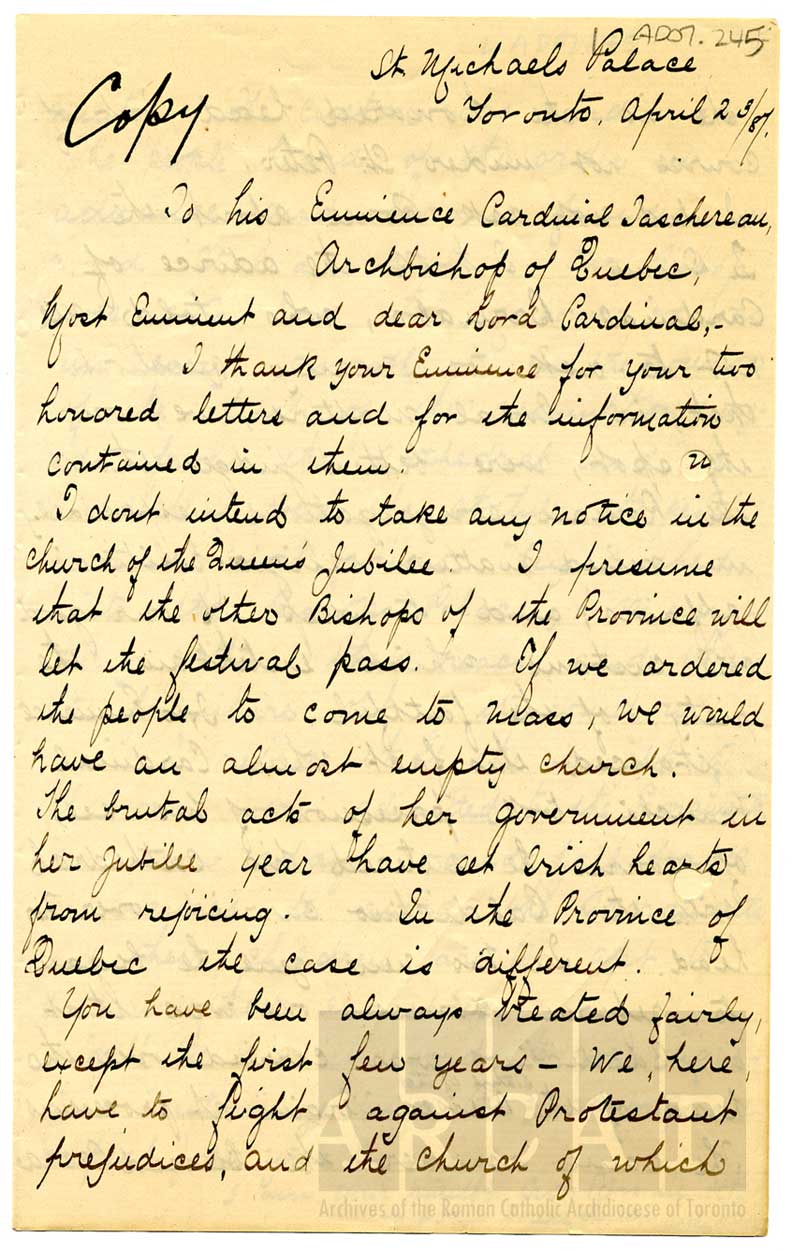 ADO7.245
St. Michaels Palace
Copy
Toronto, April 25/87.
To his Eminence Cardinal Taschereau,
Archbishop of Quebec,
Most Eminent and dear Lord Cardinal,-
I thank your Eminence for your two
honored letters and for the information
contained in them.
I dont intend to take any notice in the
church of the Queen's Jubilee. I presume
that the other Bishops of the Province will
let the festival pass. If we ordered
the people to come to Mass, we would
have an almost empty church.
The brutal acts of her government in
her Jubilee year have set Irish hearts
from rejoicing. In the Province of
Quebec the case is different.
You have been always treated fairly,
except the first few years – We, here,
have to fight against Protestant
prejudices, and the church of which
ARCAT
Archives of the Roman Catholic Archdiocese of Toronto